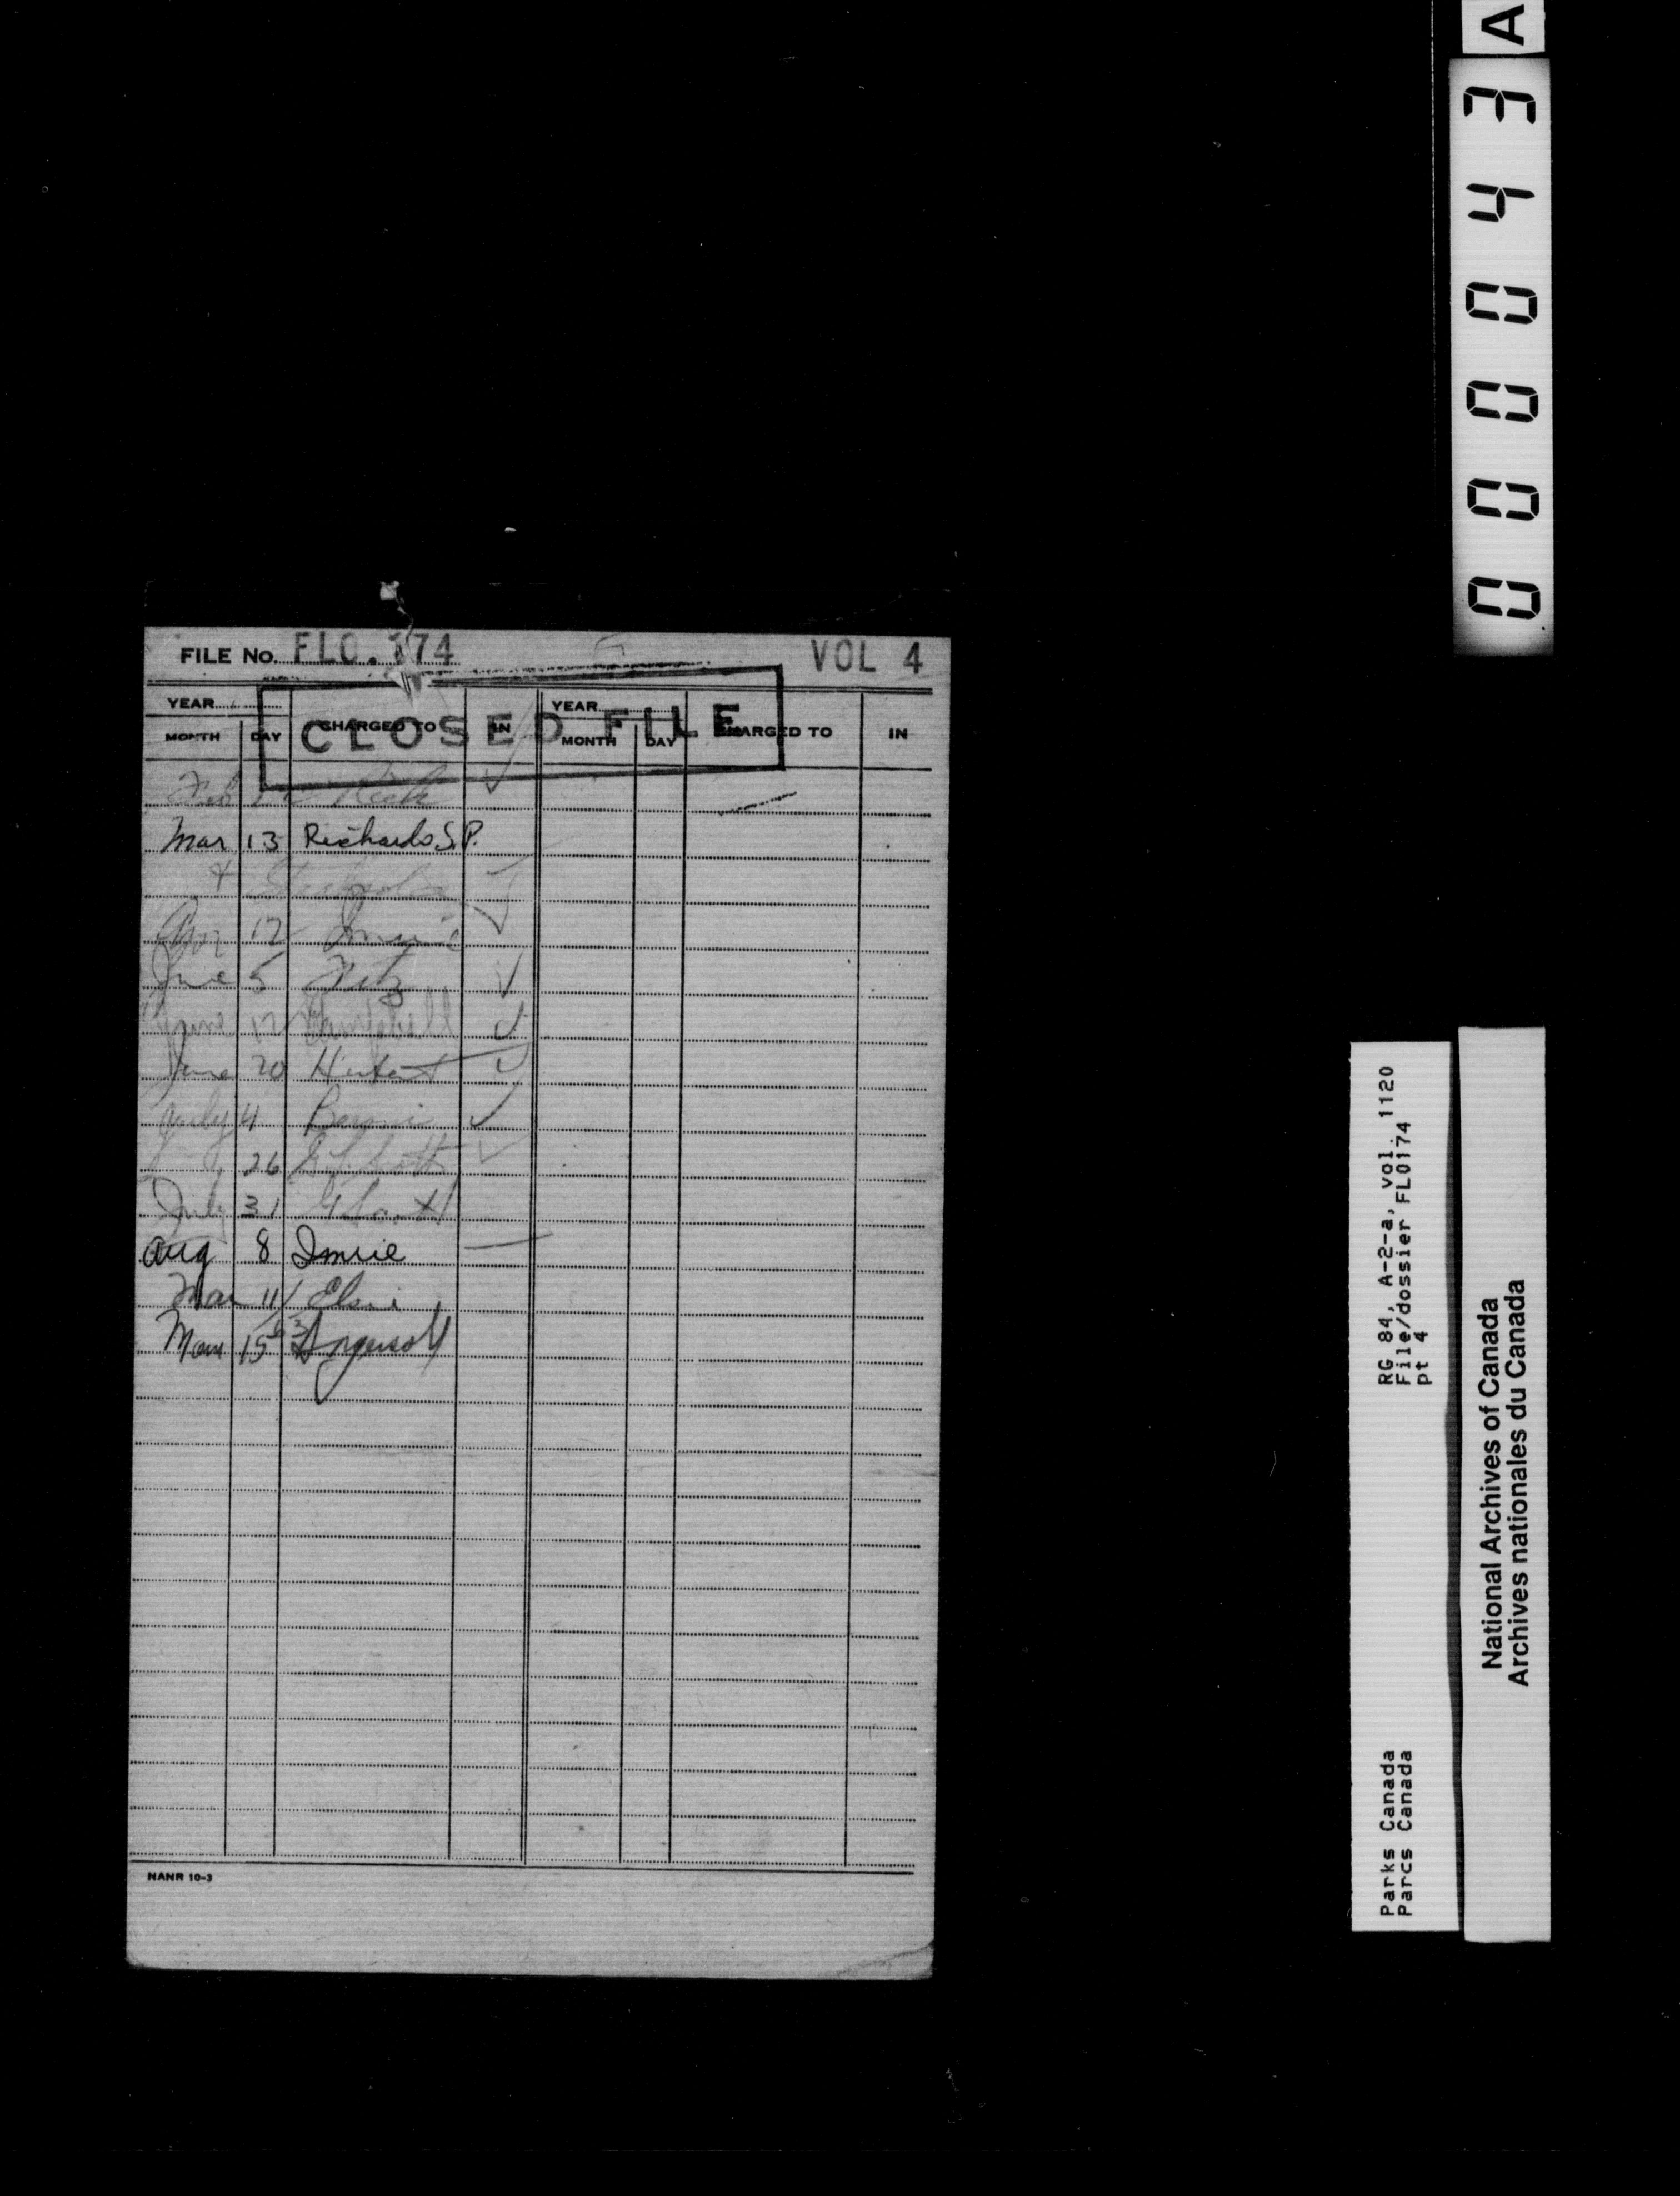 FILE No. FLO. 174 VOL 4
CLOSED FILE
YEAR YEAR
MONTH DAY CHARGED TO IN MONTH DAY CHARGED TO IN
Feb
Mar 13 Richards S.P.
Apr 12 Imrie
June 5 Fitz
June 12 Campbell
June 20
July 4
26
July 31
Aug 8 Imrie
Mar 11 Elsie
Mar 15 Ingersoll
NANR 10-3
A
000043
RG 84, A-2-a, vol. 1120
File/dossier FLO174
Pt 4
Parks Canada
Parcs Canada
National Archives of Canada
Archives nationales du Canada